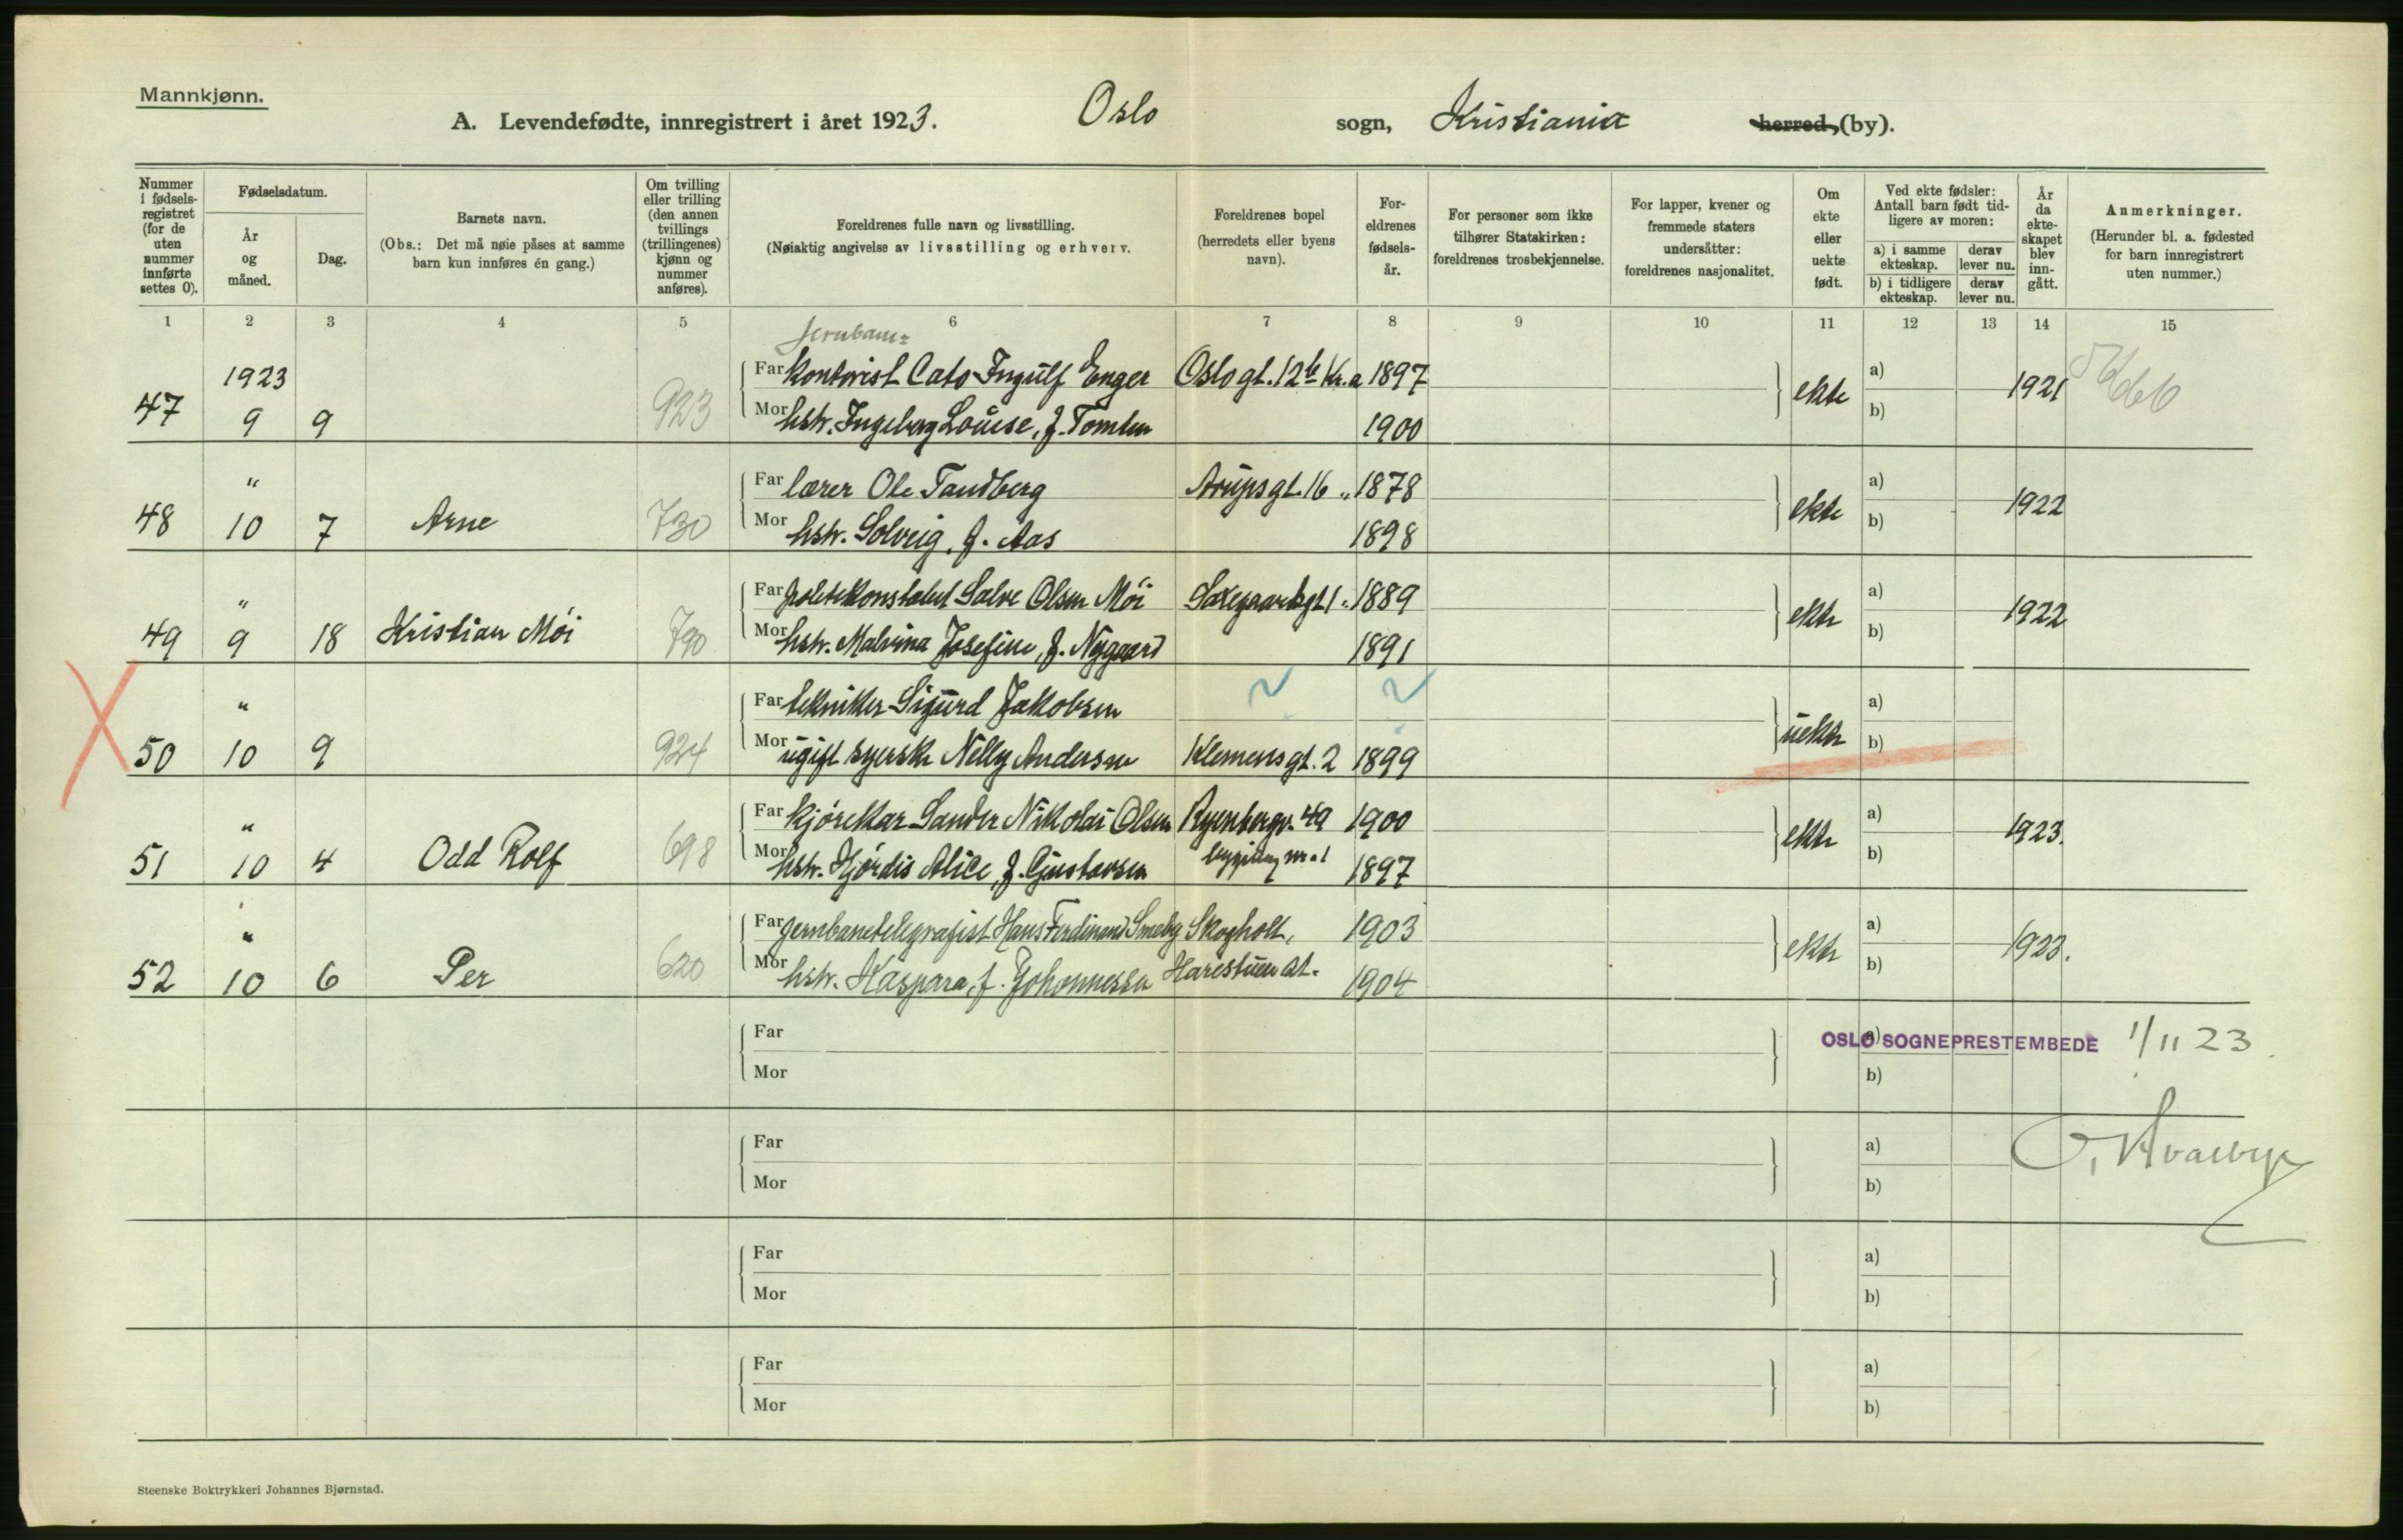 Mannkjønn.
A. Levendefødte, innregistrert i året 1923. Oslo sogn, Kristiania herred, (by).
Nummer i fødsels-registret (for de uten nummer innførte settes 0).
Fødselsdatum.
År og måned.
Dag.
Barnets navn.
(Obs.: Det må nøie påses at samme barn kun innføres én gang.)
Om tvilling eller trilling (den annen tvillings (trillingenes) kjønn og nummer anføres).
Foreldrenes fulle navn og livsstilling.
(Nøiaktig angivelse av livsstilling og erhverv.
Foreldrenes bopel (herredets eller byens navn).
For-eldrenes fødsels-år.
For personer som ikke tilhører Statskirken: foreldrenes trosbekjennelse.
For lapper, kvener og fremmede staters undersåtter: foreldrenes nasjonalitet.
Om ekte eller uekte født.
Ved ekte fødsler: Antall barn født tid-ligere av moren:
a) i samme ekteskap. derav lever nu.
b) i tidligere ekteskap. derav lever nu.
År da ekte-skapet blev inn-gått.
Anmerkninger.
(Herunder bl. a. fødested for barn innregistrert uten nummer.)
1 2 3 4 5 6 7 8 9 10 11 12 13 14 15
Jernbane=
1923 Far kontorist Cato Ingulf Enger Oslo gt. 12b Kr.a 1897 a)
47 9 9 923 Mor hstr. Ingeborg Louise, f. Tomten 1900 ekte b) 1921
" Far lærer Ole Tandberg Arups gt. 16 " 1878 a)
48 10 7 Arne 730 Mor hstr. Solveig, f. Aas 1898 ekte b) 1922
" Far politikonstabel Salve Olsen Mói Saxegaardsgt 1 " 1889 a)
49 9 18 Kristian Mói 790 Mor hstr. Malvina Josefine, f. Nygaard 1891 ekte b) 1922
" Far tekniker Sigurd Jakobsen ? ? a)
50 10 9 924 Mor ugift syerske Nelly Andersen Klemens gt. 2 1899 uekte b)
" Far kjórekar Sander Nikolai Olsen Ryenbergv. 49 1900 a)
51 10 4 Odd Rolf 698 Mor hstr. Hjórdis Alice, f. Gustavsen bygning nr. 1 1897 ekte b) 1923.
" Far jernbanetelegrafist Hans Ferdinand Smeby Skogholt, 1903 a)
52 10 6 Per 620 Mor hstr. Kaspara, f. Johannessen Harestuen st. 1904 ekte b) 1923.
Far a)
OSLO SOGNEPRESTEMBEDE 1/11 23.
Mor b)
Far a)
Mor b)
Far a)
Mor b)
Far a)
Mor b)
Steenske Boktrykkeri Johannes Bjørnstad.